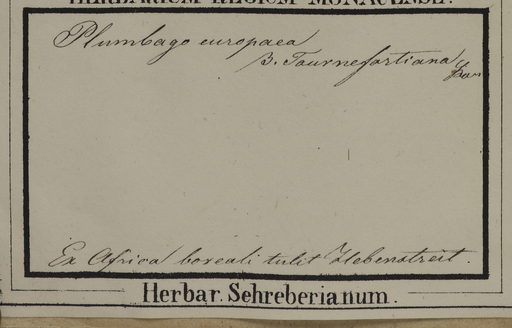 HERBARIUM REGIUM MONACENSE.
Plumbago europaea
β. Tournefortiana
Ex Africa boreali tulit Hebenstreit.
Herbar. Schreberianum.